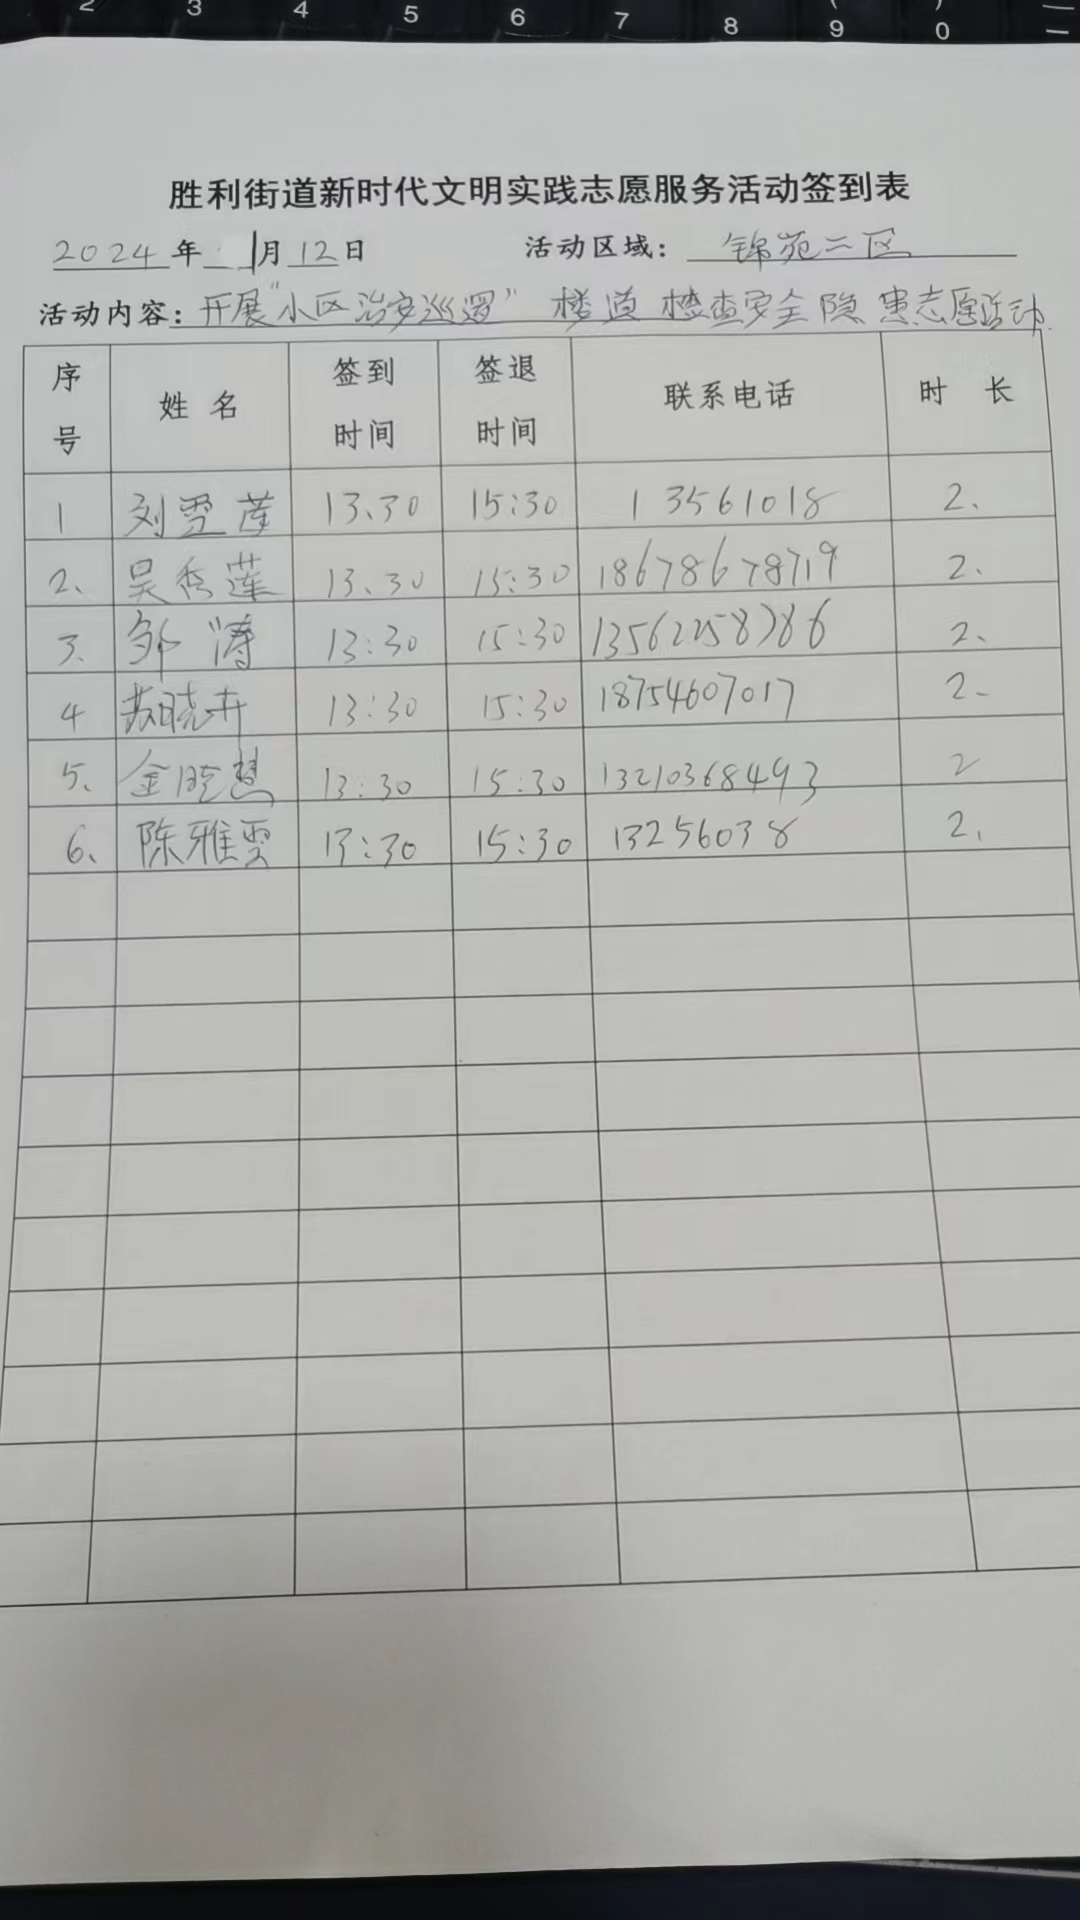 2 3 4 5 6 7 8 9 0
胜利街道新时代文明实践志愿服务活动签到表
2024年 1月12日 活动区域: 锦苑二区
活动内容: 开展“小区治安巡逻” 楼道检查安全隐患志愿活动.
序号 姓名 签到时间 签退时间 联系电话 时长
1 刘雯 13.30 15:30 13561018 2.
2、 吴秀莲 13.30 15:30 18678678719 2.
3. 邹涛 13:30 15:30 13562258786 2.
4 苏晓卉 13:30 15:30 18754607017 2-
5. 金晓慧 13:30 15:30 13210368493 2
6、 陈雅雯 13:30 15:30 13256038 2.